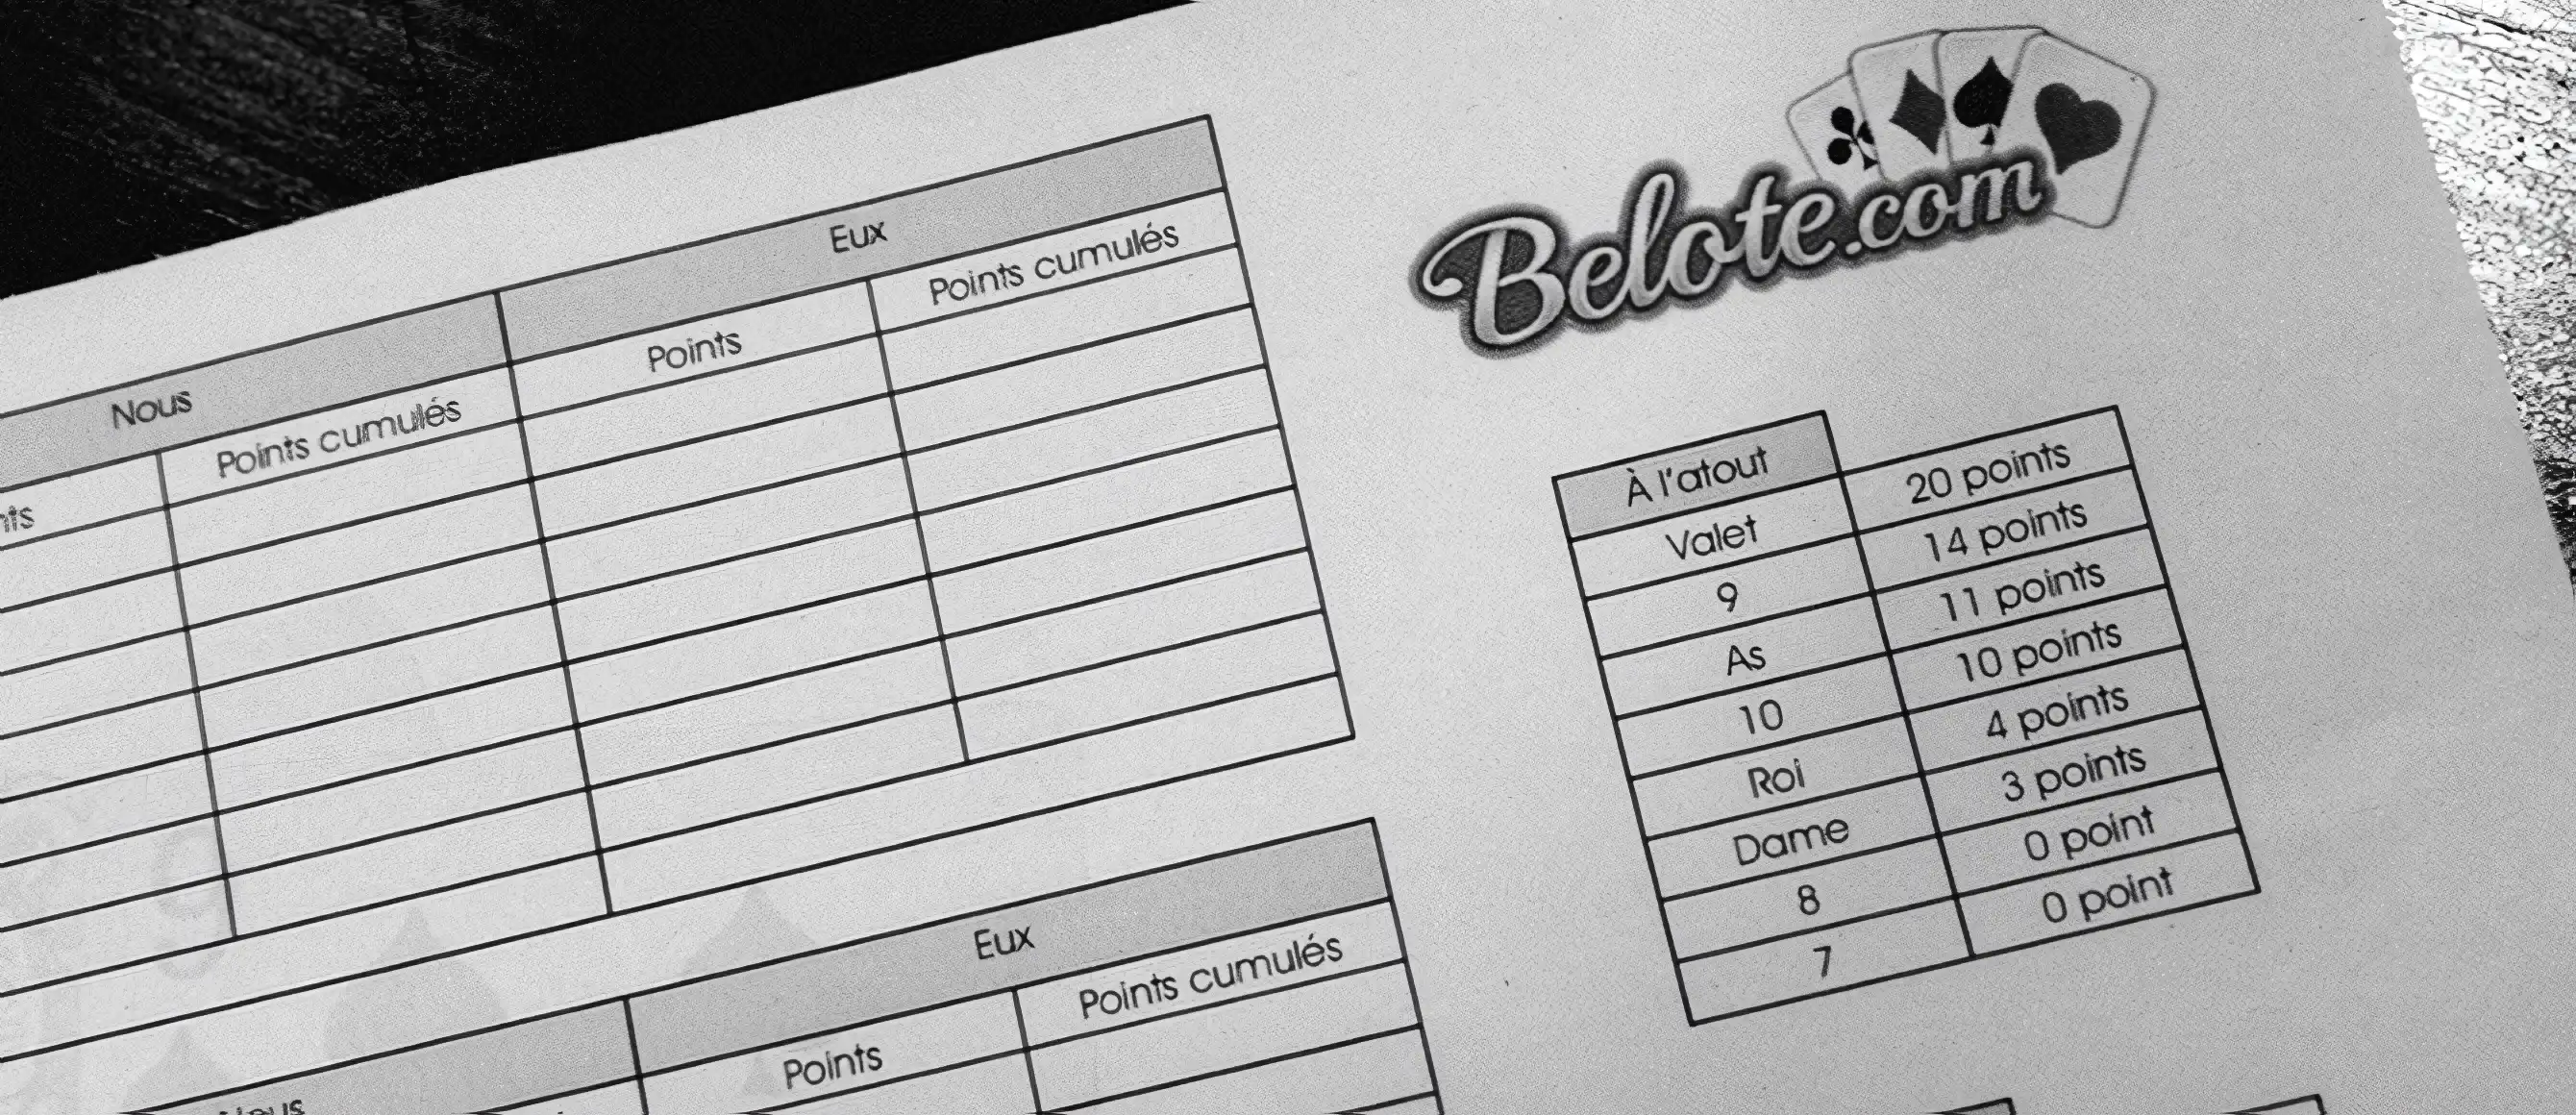 Nous
Eux
Points cumulés
Points
Points cumulés
Eux
Points
Points cumulés
Belote.com
À l'atout
Valet 20 points
9 14 points
As 11 points
10 10 points
Roi 4 points
Dame 3 points
8 0 point
7 0 point